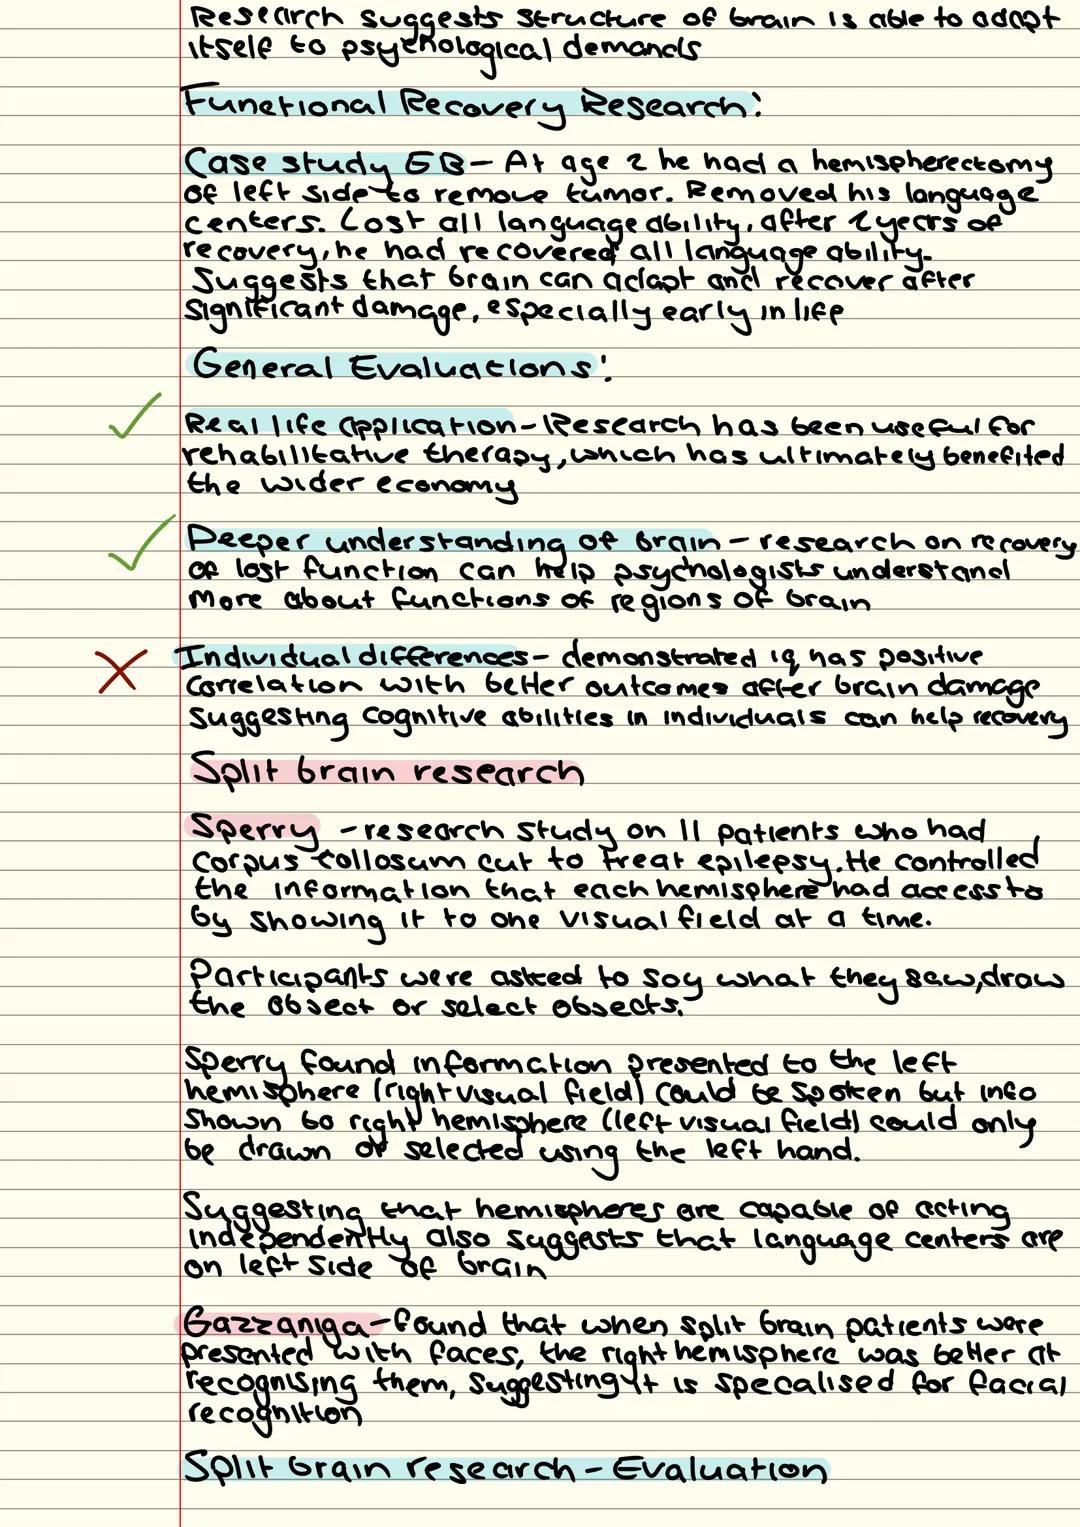 Research suggests structure of brain is able to adapt
itself to psychological demands
Functional Recovery Research:
Case study EB - At age 2 he had a hemispherectomy
of left side to remove tumor. Removed his language
centers. Lost all language ability, after 2 years of
recovery, he had recovered all language ability.
Suggests that brain can adapt and recover after
significant damage, especially early in life
General Evaluations:
Real life application - Research has been useful for
rehabilitative therapy, which has ultimately benefited
the wider economy
Deeper understanding of brain - research on recovery
of lost function can help psychologists understand
more about functions of regions of brain
Individual differences - demonstrated iq has positive
correlation with better outcomes after brain damage
suggesting cognitive abilities in individuals can help recovery
Split brain research
Sperry - research study on 11 patients who had
corpus collosum cut to treat epilepsy. He controlled
the information that each hemisphere had access to
by showing it to one visual field at a time.
Participants were asked to say what they saw, draw
the object or select objects.
Sperry found information presented to the left
hemisphere (right visual field) could be spoken but info
shown to right hemisphere (left visual field) could only
be drawn or selected using the left hand.
Suggesting that hemispheres are capable of acting
independently also suggests that language centers are
on left side of brain
Gazzaniga - found that when split brain patients were
presented with faces, the right hemisphere was better at
recognising them, suggesting it is specalised for facial
recognition
Split brain research - Evaluation